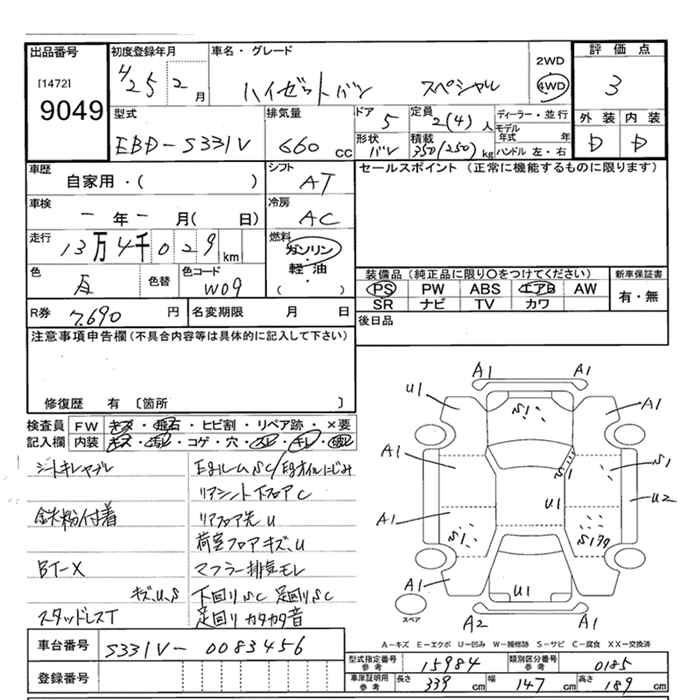 出品番号
[1472]
9049
初度登録年月
H25年2月
車名・グレード
ハイゼットバン スペシャル
2WD
4WD
評価点
3
外装 内装
D D
型式
EBD-S331V
排気量
660 cc
ドア
5
形状
バン
定員
2(4)人
積載
350(250)kg
ディーラー・並行
モデル
年式 年
ハンドル 左・右
車歴
自家用・( )
車検
ー年ー月( 日)
走行
13万4千029km
色
白
色替
色コード
W09
シフト
AT
冷房
AC
燃料
ガソリン
・
軽・油
( )
セールスポイント (正常に機能するものに限ります)
装備品 (純正品に限り○をつけてください)
PS PW ABS エアB AW
SR ナビ TV カワ
新車保証書
有・無
R券
7.690 円
名変期限 月 日
後日品
注意事項申告欄(不具合内容等は具体的に記入して下さい)
修復歴 有 〔箇所 〕
検査員
記入欄
FW キズ・飛石・ヒビ割・リペア跡・×要
内装 キズ・汚れ・コゲ・穴・スレ・キレ・破れ
シートキレヤブレ
Egルーム SC/Egオイルにじみ
リアシート下フロアC
鉄粉付着
リアフロア先U
荷室フロアキズ、U
BT-X
マフラー排気モレ
キズ、U、S
下回りSC 足回りSC
スタッドレスT
足回りカタカタ音
A1 A1
U1 A1
S1
A1 S1 S1
U1 U2
A1 S1 S1
A1 U1
A2 A1
スペア
A-キズ E-エクボ U-凹み W-補修跡 S-サビ C-腐食 XX-交換済
車台番号
S331V-0083456
登録番号
型式指定番号
参考
15984
類別区分番号
参考
0185
車庫証明用
参考
長さ 339 cm 幅 147 cm 高さ 189 cm